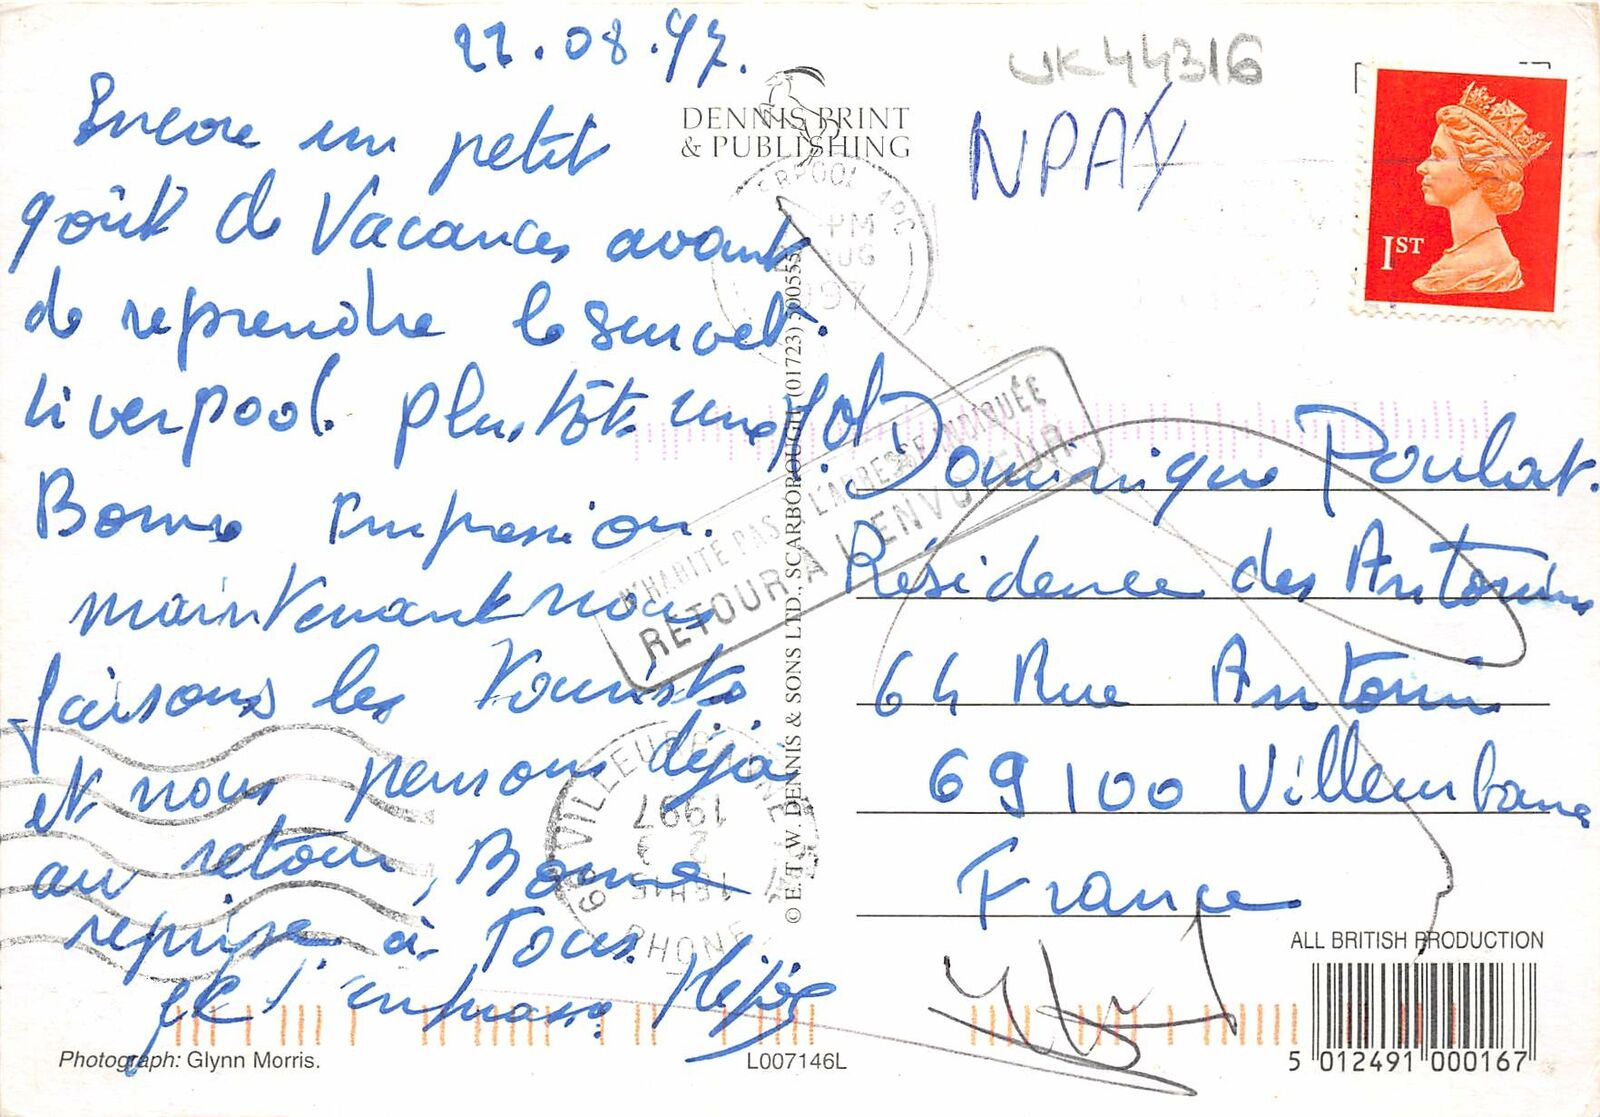 22.08.97.
Encore un petit
goût de Vacances avant
de reprendre le
Liverpool. plutôt une
Bonne Impression.
maintenant nous
faisons les touristes
et nous pensons déjà
au retour, Bonne
reprise à Tous.
je t'embrasse
UK44316
NPAY
DENNIS PRINT
& PUBLISHING
1ST
ERPOOL APC
PM
AUG
1997
N'HABITE PAS À L'ADRESSE INDIQUÉE
RETOUR À L'ENVOYEUR
Dominique Poulat.
Résidence des Antonins
64 Rue Antonin
69100 Villeurbanne
France
VILLEURBANNE
1997
RHONE
© E.T.W. DENNIS & SONS LTD., SCARBOROUGH (01723) 500555
ALL BRITISH PRODUCTION
5 012491 000167
Photograph: Glynn Morris.
L007146L